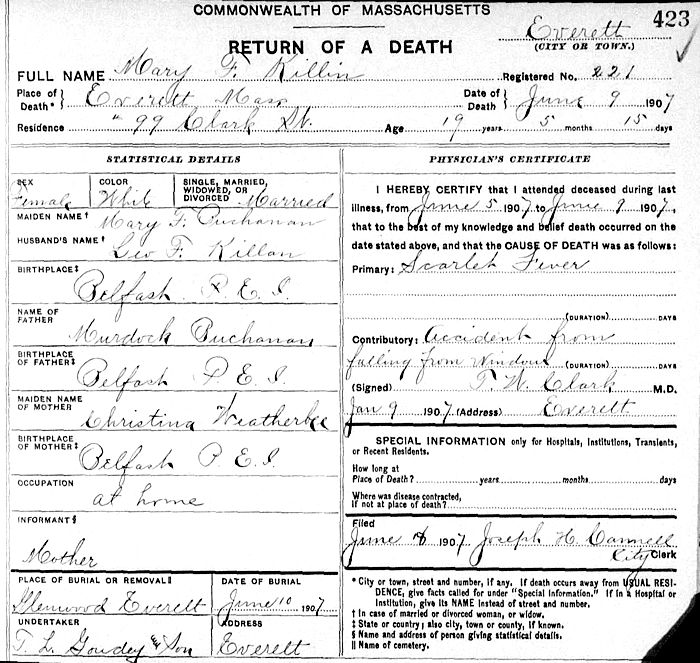 COMMONWEALTH OF MASSACHUSETTS
423
RETURN OF A DEATH
Everett
(CITY OR TOWN.)
FULL NAME Mary F. Killin
Registered No. 221
Place of Death* } Everett Mass
Date of Death } June 9 1907
Residence " 99 Clark St. Age 19 years 5 months 15 days
STATISTICAL DETAILS
SEX Female
COLOR White
SINGLE, MARRIED, WIDOWED, OR DIVORCED Married
MAIDEN NAME† Mary F. Buchanan
HUSBAND'S NAME† Leo F. Killan
BIRTHPLACE‡
Belfast P. E. I.
NAME OF FATHER
Murdock Buchanan
BIRTHPLACE OF FATHER‡
Belfast P E I
MAIDEN NAME OF MOTHER
Christina Weatherbee
BIRTHPLACE OF MOTHER‡
Belfast P. E. I.
OCCUPATION
at home
INFORMANT§
Mother
PLACE OF BURIAL OR REMOVAL‖
Glenwood Everett
DATE OF BURIAL
June 10 1907
UNDERTAKER
T. L. Goudey & Son
ADDRESS
Everett
PHYSICIAN'S CERTIFICATE
I HEREBY CERTIFY that I attended deceased during last
illness, from June 5 1907 to June 9 1907,
that to the best of my knowledge and belief death occurred on the
date stated above, and that the CAUSE OF DEATH was as follows:
Primary: Scarlet Fever
(DURATION) DAYS
Contributory: Accident from
falling from window (DURATION) DAYS
(Signed) T. W. Clark M.D.
Jan 9 1907 (Address) Everett
SPECIAL INFORMATION only for Hospitals, Institutions, Transients,
or Recent Residents.
How long at
Place of Death? years months days
Where was disease contracted,
If not at place of death?
Filed
June 1907 Joseph H. Cannell
City Clerk
* City or town, street and number, if any. If death occurs away from USUAL RESI-
DENCE, give facts called for under "Special Information." If in a Hospital or
Institution, give its NAME instead of street and number.
† In case of married or divorced woman, or widow.
‡ State or country; also city, town or county, if known.
§ Name and address of person giving statistical details.
‖ Name of cemetery.